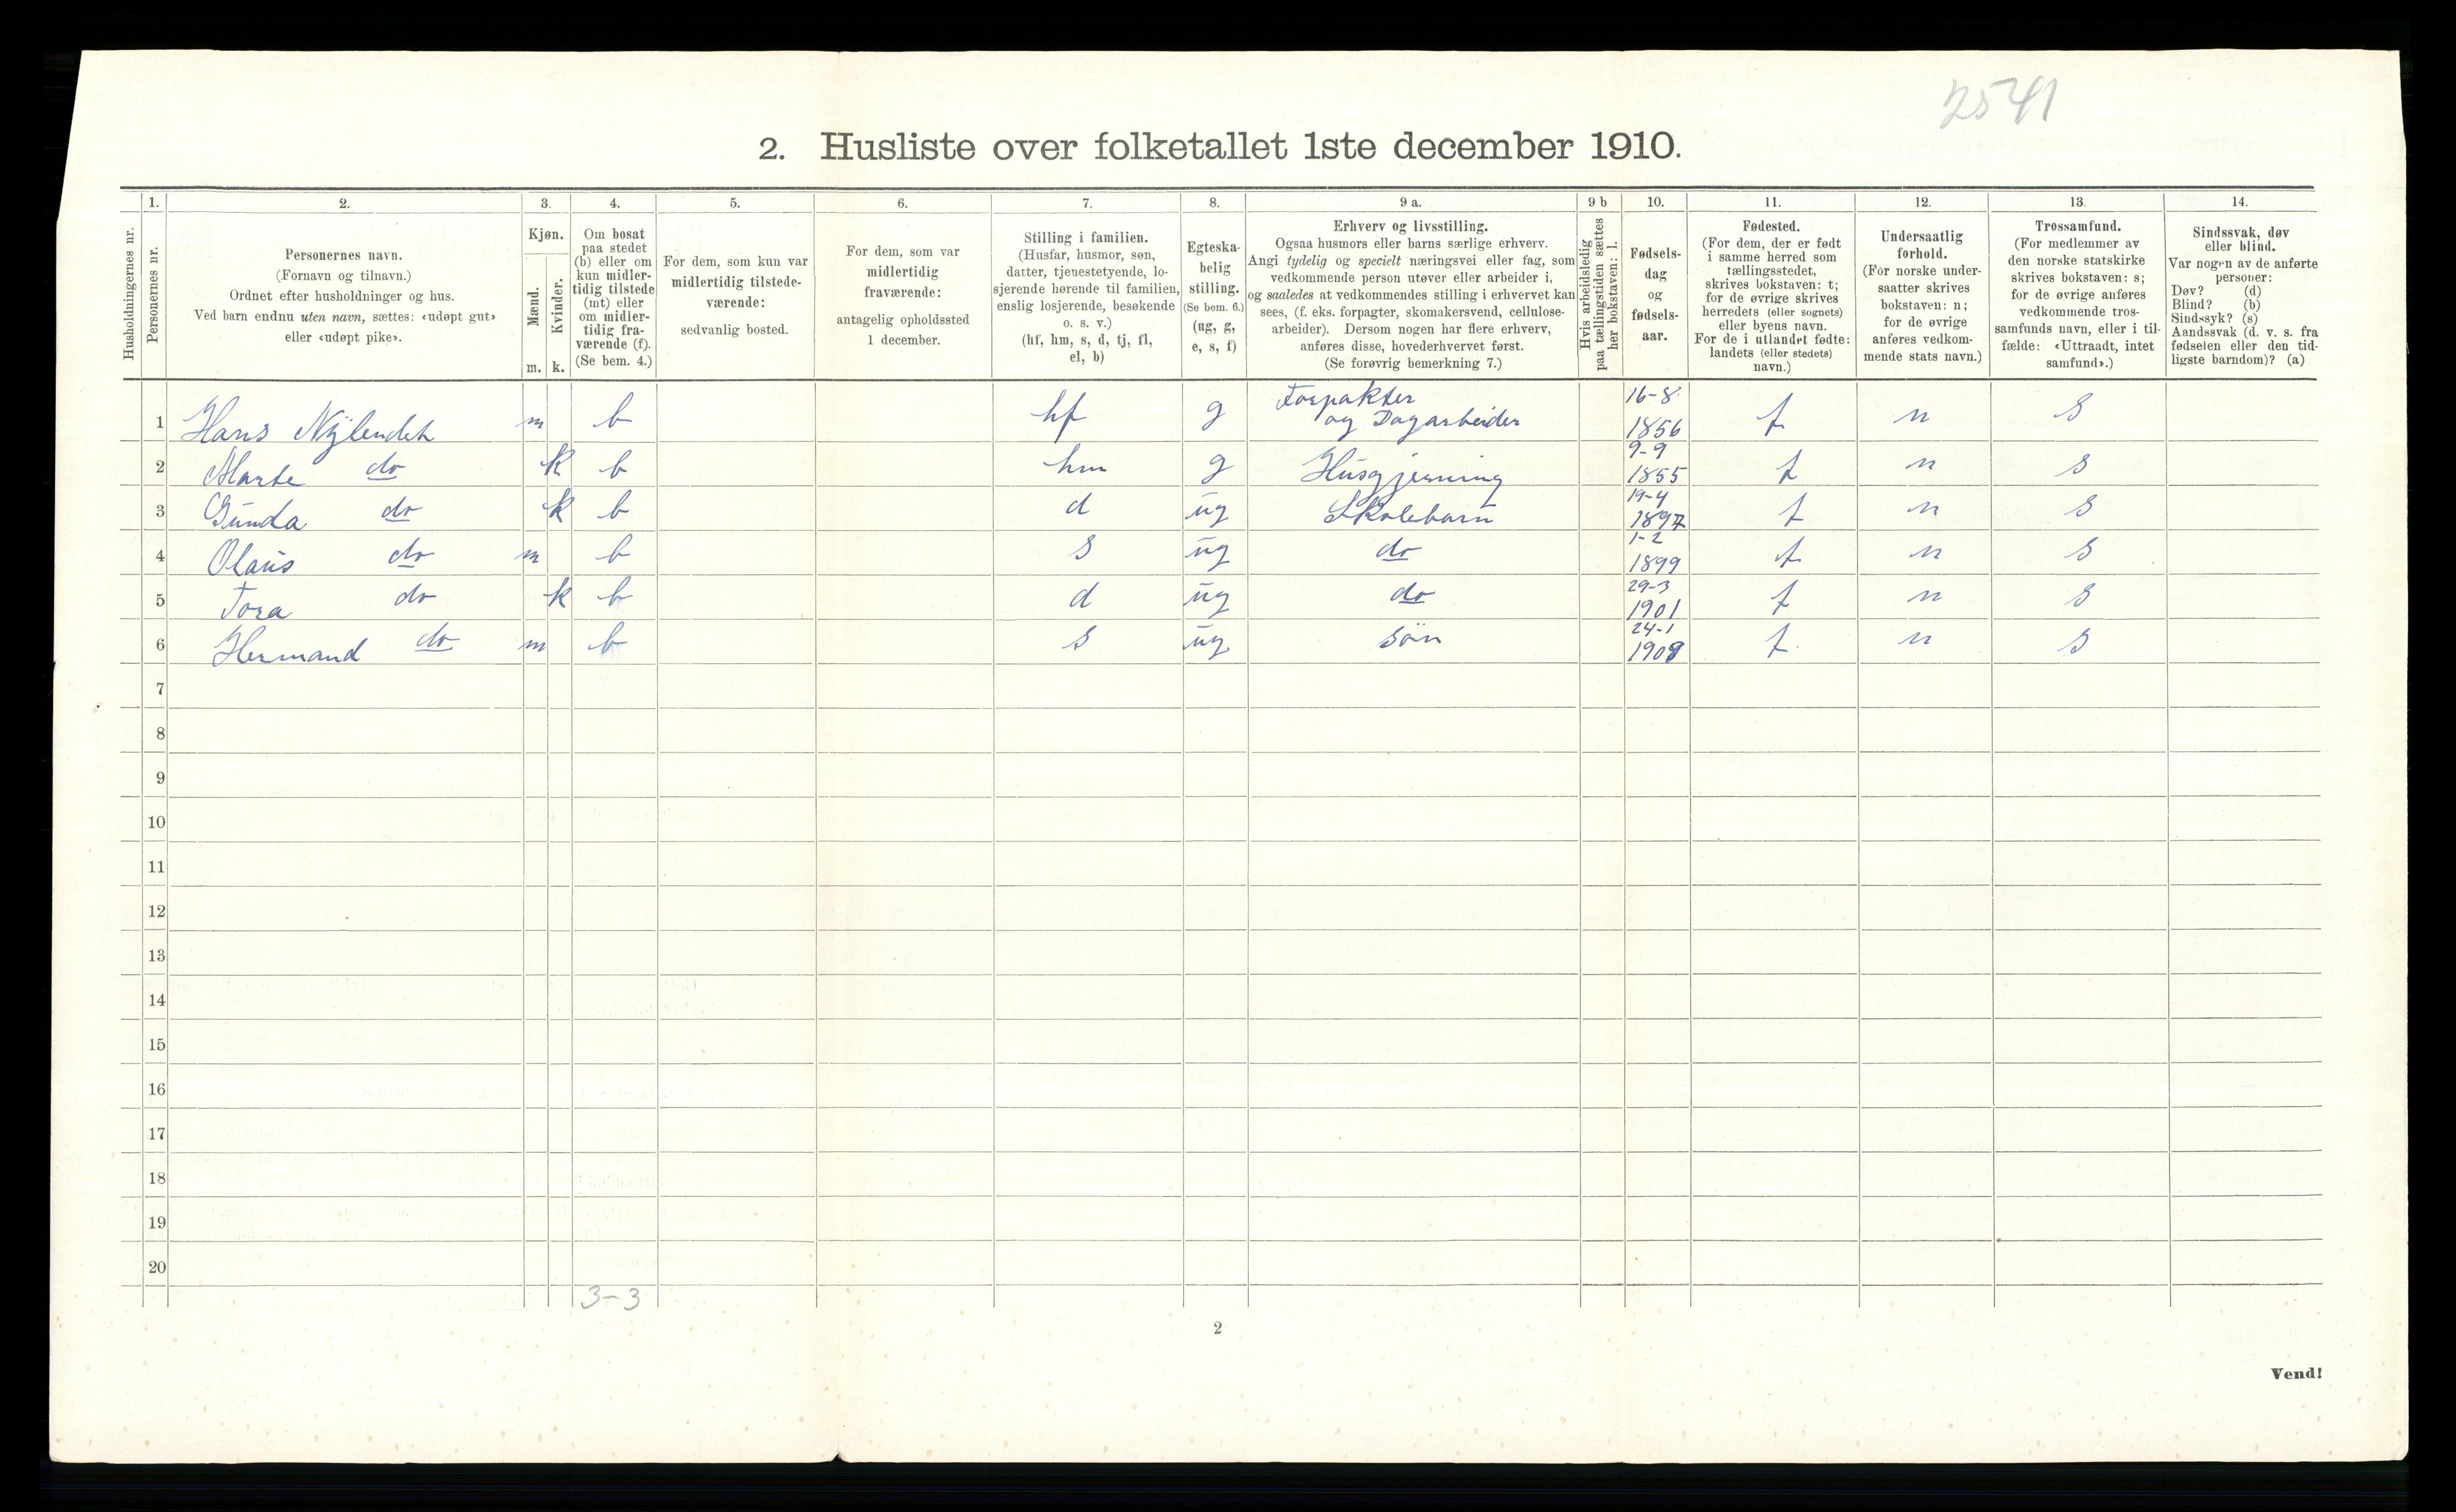 2541
2. Husliste over folketallet 1ste december 1910.
Husholdningernes nr.
1. Personernes nr.
2.
Personernes navn.
(Fornavn og tilnavn.)
Ordnet efter husholdninger og hus.
Ved barn endnu uten navn, sættes: «udøpt gut»
eller «udøpt pike».
3.
Kjøn.
Mænd.
Kvinder.
m. k.
4.
Om bosat
paa stedet
(b) eller om
kun midler-
tidig tilstede
(mt) eller
om midler-
tidig fra-
værende (f).
(Se bem. 4.)
5.
For dem, som kun var
midlertidig tilstede-
værende:
sedvanlig bosted.
6.
For dem, som var
midlertidig
fraværende:
antagelig opholdssted
1 december.
7.
Stilling i familien.
(Husfar, husmor, søn,
datter, tjenestetyende, lo-
sjerende hørende til familien,
enslig losjerende, besøkende
o. s. v.)
(hf, hm, s, d, tj, fl,
el, b)
8.
Egteska-
belig
stilling.
(Se bem. 6.)
(ug, g,
e, s, f)
9 a.
Erhverv og livsstilling.
Ogsaa husmors eller barns særlige erhverv.
Angi tydelig og specielt næringsvei eller fag, som
vedkommende person utøver eller arbeider i,
og saaledes at vedkommendes stilling i erhvervet kan
sees, (f. eks. forpagter, skomakersvend, cellulose-
arbeider). Dersom nogen har flere erhverv,
anføres disse, hovederhvervet først.
(Se forøvrig bemerkning 7.)
9 b
Hvis arbeidsledig
paa tællingstiden sættes
her bokstaven: l.
10.
Fødsels-
dag
og
fødsels-
aar.
11.
Fødested.
(For dem, der er født
i samme herred som
tællingsstedet,
skrives bokstaven: t;
for de øvrige skrives
herredets (eller sognets)
eller byens navn.
For de i utlandet fødte:
landets (eller stedets)
navn.)
12.
Undersaatlig
forhold.
(For norske under-
saatter skrives
bokstaven: n;
for de øvrige
anføres vedkom-
mende stats navn.)
13.
Trossamfund.
(For medlemmer av
den norske statskirke
skrives bokstaven: s;
for de øvrige anføres
vedkommende tros-
samfunds navn, eller i til-
fælde: «Uttraadt, intet
samfund».)
14.
Sindssvak, døv
eller blind.
Var nogen av de anførte
personer:
Døv? (d)
Blind? (b)
Sindssyk? (s)
Aandssvak (d. v. s. fra
fødselen eller den tid-
ligste barndom)? (a)
1 Hans Nylendet m b hf g Forpakter og Dagarbeider 16-8 1856 t n s
2 Marte do k b hm g Husgjerning 9-9 1855 t n s
3 Gunda do k b d ug Skolebarn 19-4 1897 t n s
4 Olaus do m b s ug do 1-2 1899 t n s
5 Tora do k b d ug do 29-3 1901 t n s
6 Hermand do m b s ug søn 24-1 t n s
7
8
9
10
11
12
13
14
15
16
17
18
19
20
3-3
2
Vend!